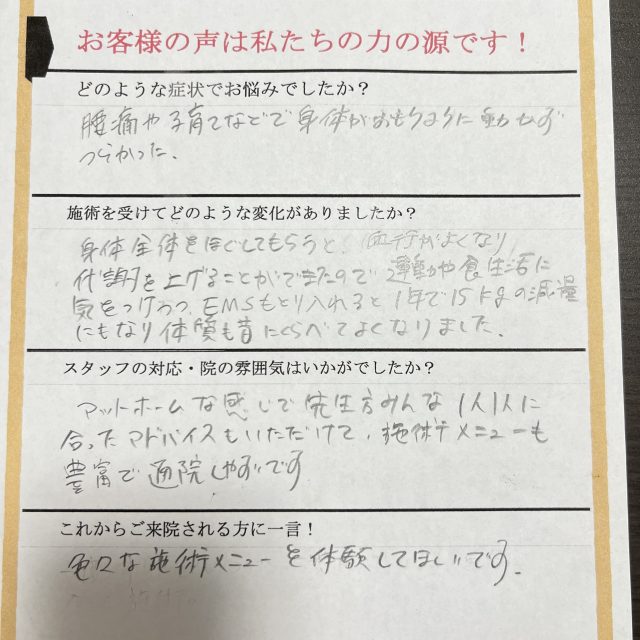 お客様の声は私たちの力の源です！
どのような症状でお悩みでしたか？
腰痛や子育てなどで身体がおもうように動かず
つらかった。
施術を受けてどのような変化がありましたか？
身体全体をほぐしてもらうと、血行がよくなり
代謝を上げることができたので運動や食生活に
気をつけつつ、EMSもとり入れると1年で15kgの減量
にもなり体質も昔にくらべてよくなりました。
スタッフの対応・院の雰囲気はいかがでしたか？
アットホームな感じで先生方みんな1人1人に
合ったアドバイスもいただけて、施術メニューも
豊富で通院しやすいです
これからご来院される方に一言！
色々な施術メニューを体験してほしいです。